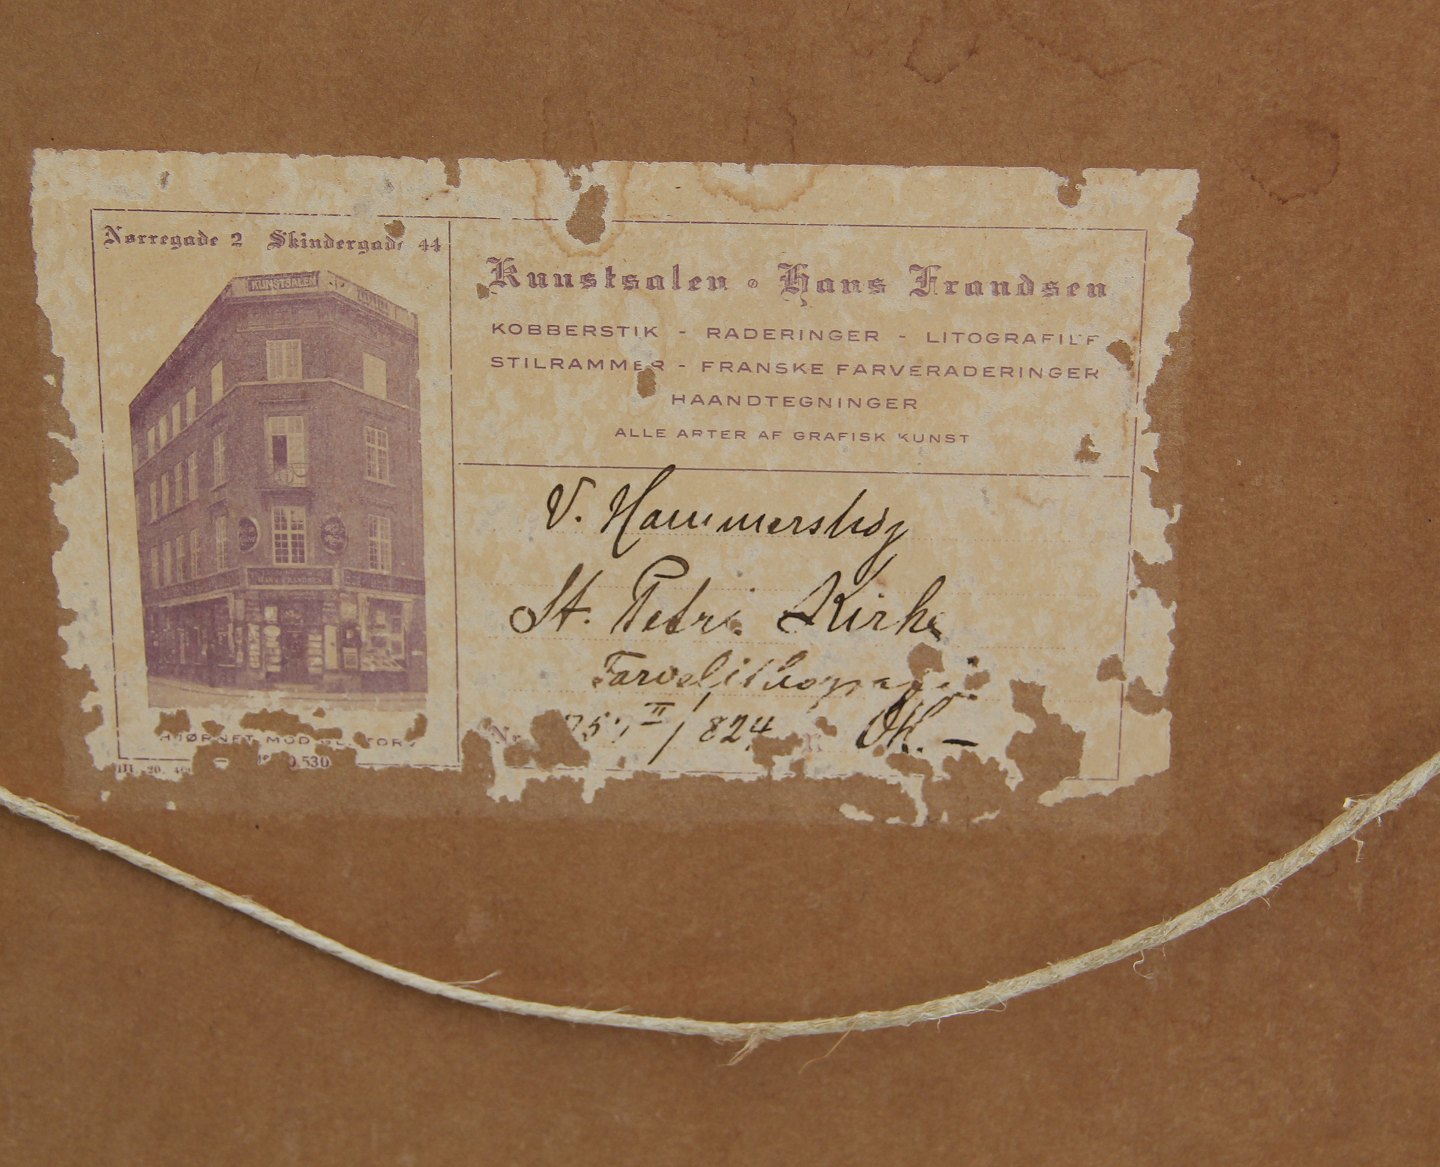 Nørregade 2 Skindergade 44
KUNSTSALEN
HANS FRANDSEN
HJØRNET MOD GL. TORV
Kunstsalen Hans Frandsen
KOBBERSTIK - RADERINGER - LITOGRAFIER
STILRAMMER - FRANSKE FARVERADERINGER
HAANDTEGNINGER
ALLE ARTER AF GRAFISK KUNST
V. Hammershøj
St. Petri Kirke
Farvelithografi
II / 824